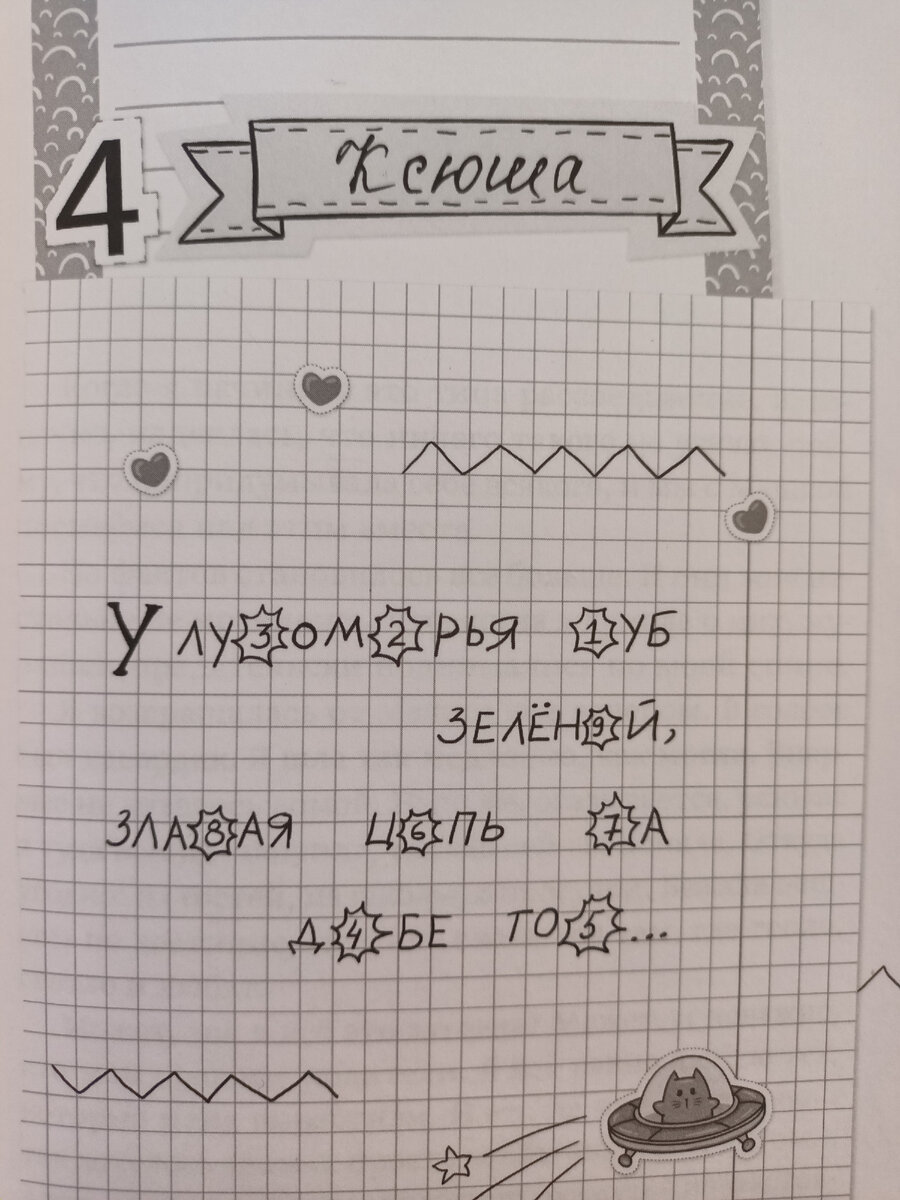 4
Ксюша
У ЛУ3ОМ2РЬЯ 1УБ
ЗЕЛЁН9Й,
ЗЛА8АЯ Ц6ПЬ 7А
Д4БЕ ТО5...